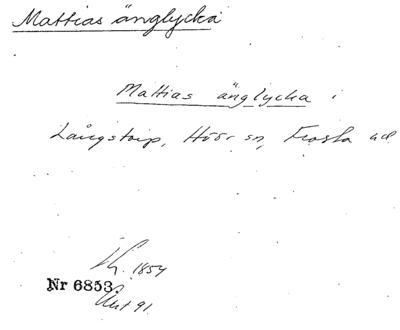 Mattias änglycka
Mattias änglycka i
Långstorp, Höör sn, Frosta hd
1854
Nr 6853
91